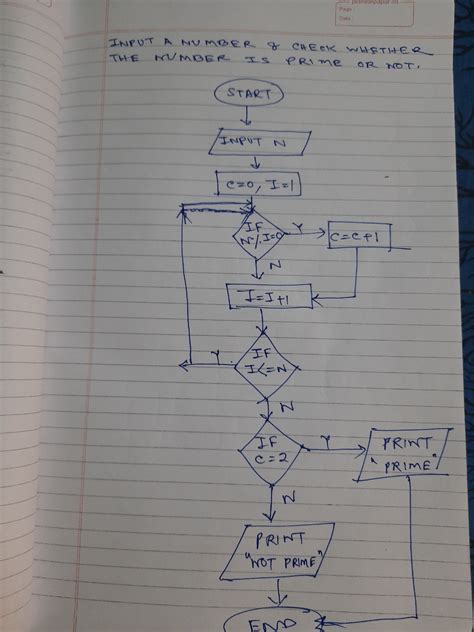 Page:
Date:
INPUT A NUMBER & CHECK WHETHER
THE NUMBER IS PRIME OR NOT.
START
INPUT N
C=0, I=1
IF
N%I=0
Y
C=C+1
N
I=I+1
IF
I<=N
Y
N
IF
C=2
Y
PRINT
"PRIME"
N
PRINT
"NOT PRIME"
END